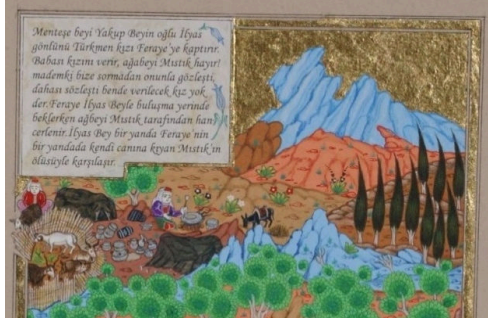 Menteşe beyi Yakup Beyin oğlu İlyas
gönlünü Türkmen kızı Feraye'ye kaptırır.
Babası kızını verir, ağabeyi Mıstık hayır!
mademki bize sormadan onunla gözleşti,
dahası sözleşti bende verilecek kız yok
der.Feraye İlyas Beyle buluşma yerinde
beklerken ağbeyi Mıstık tarafından han
cerlenir.İlyas Bey bir yanda Feraye'nin
bir yandada kendi canına kıyan Mıstık'ın
ölüsüyle karşılaşır.